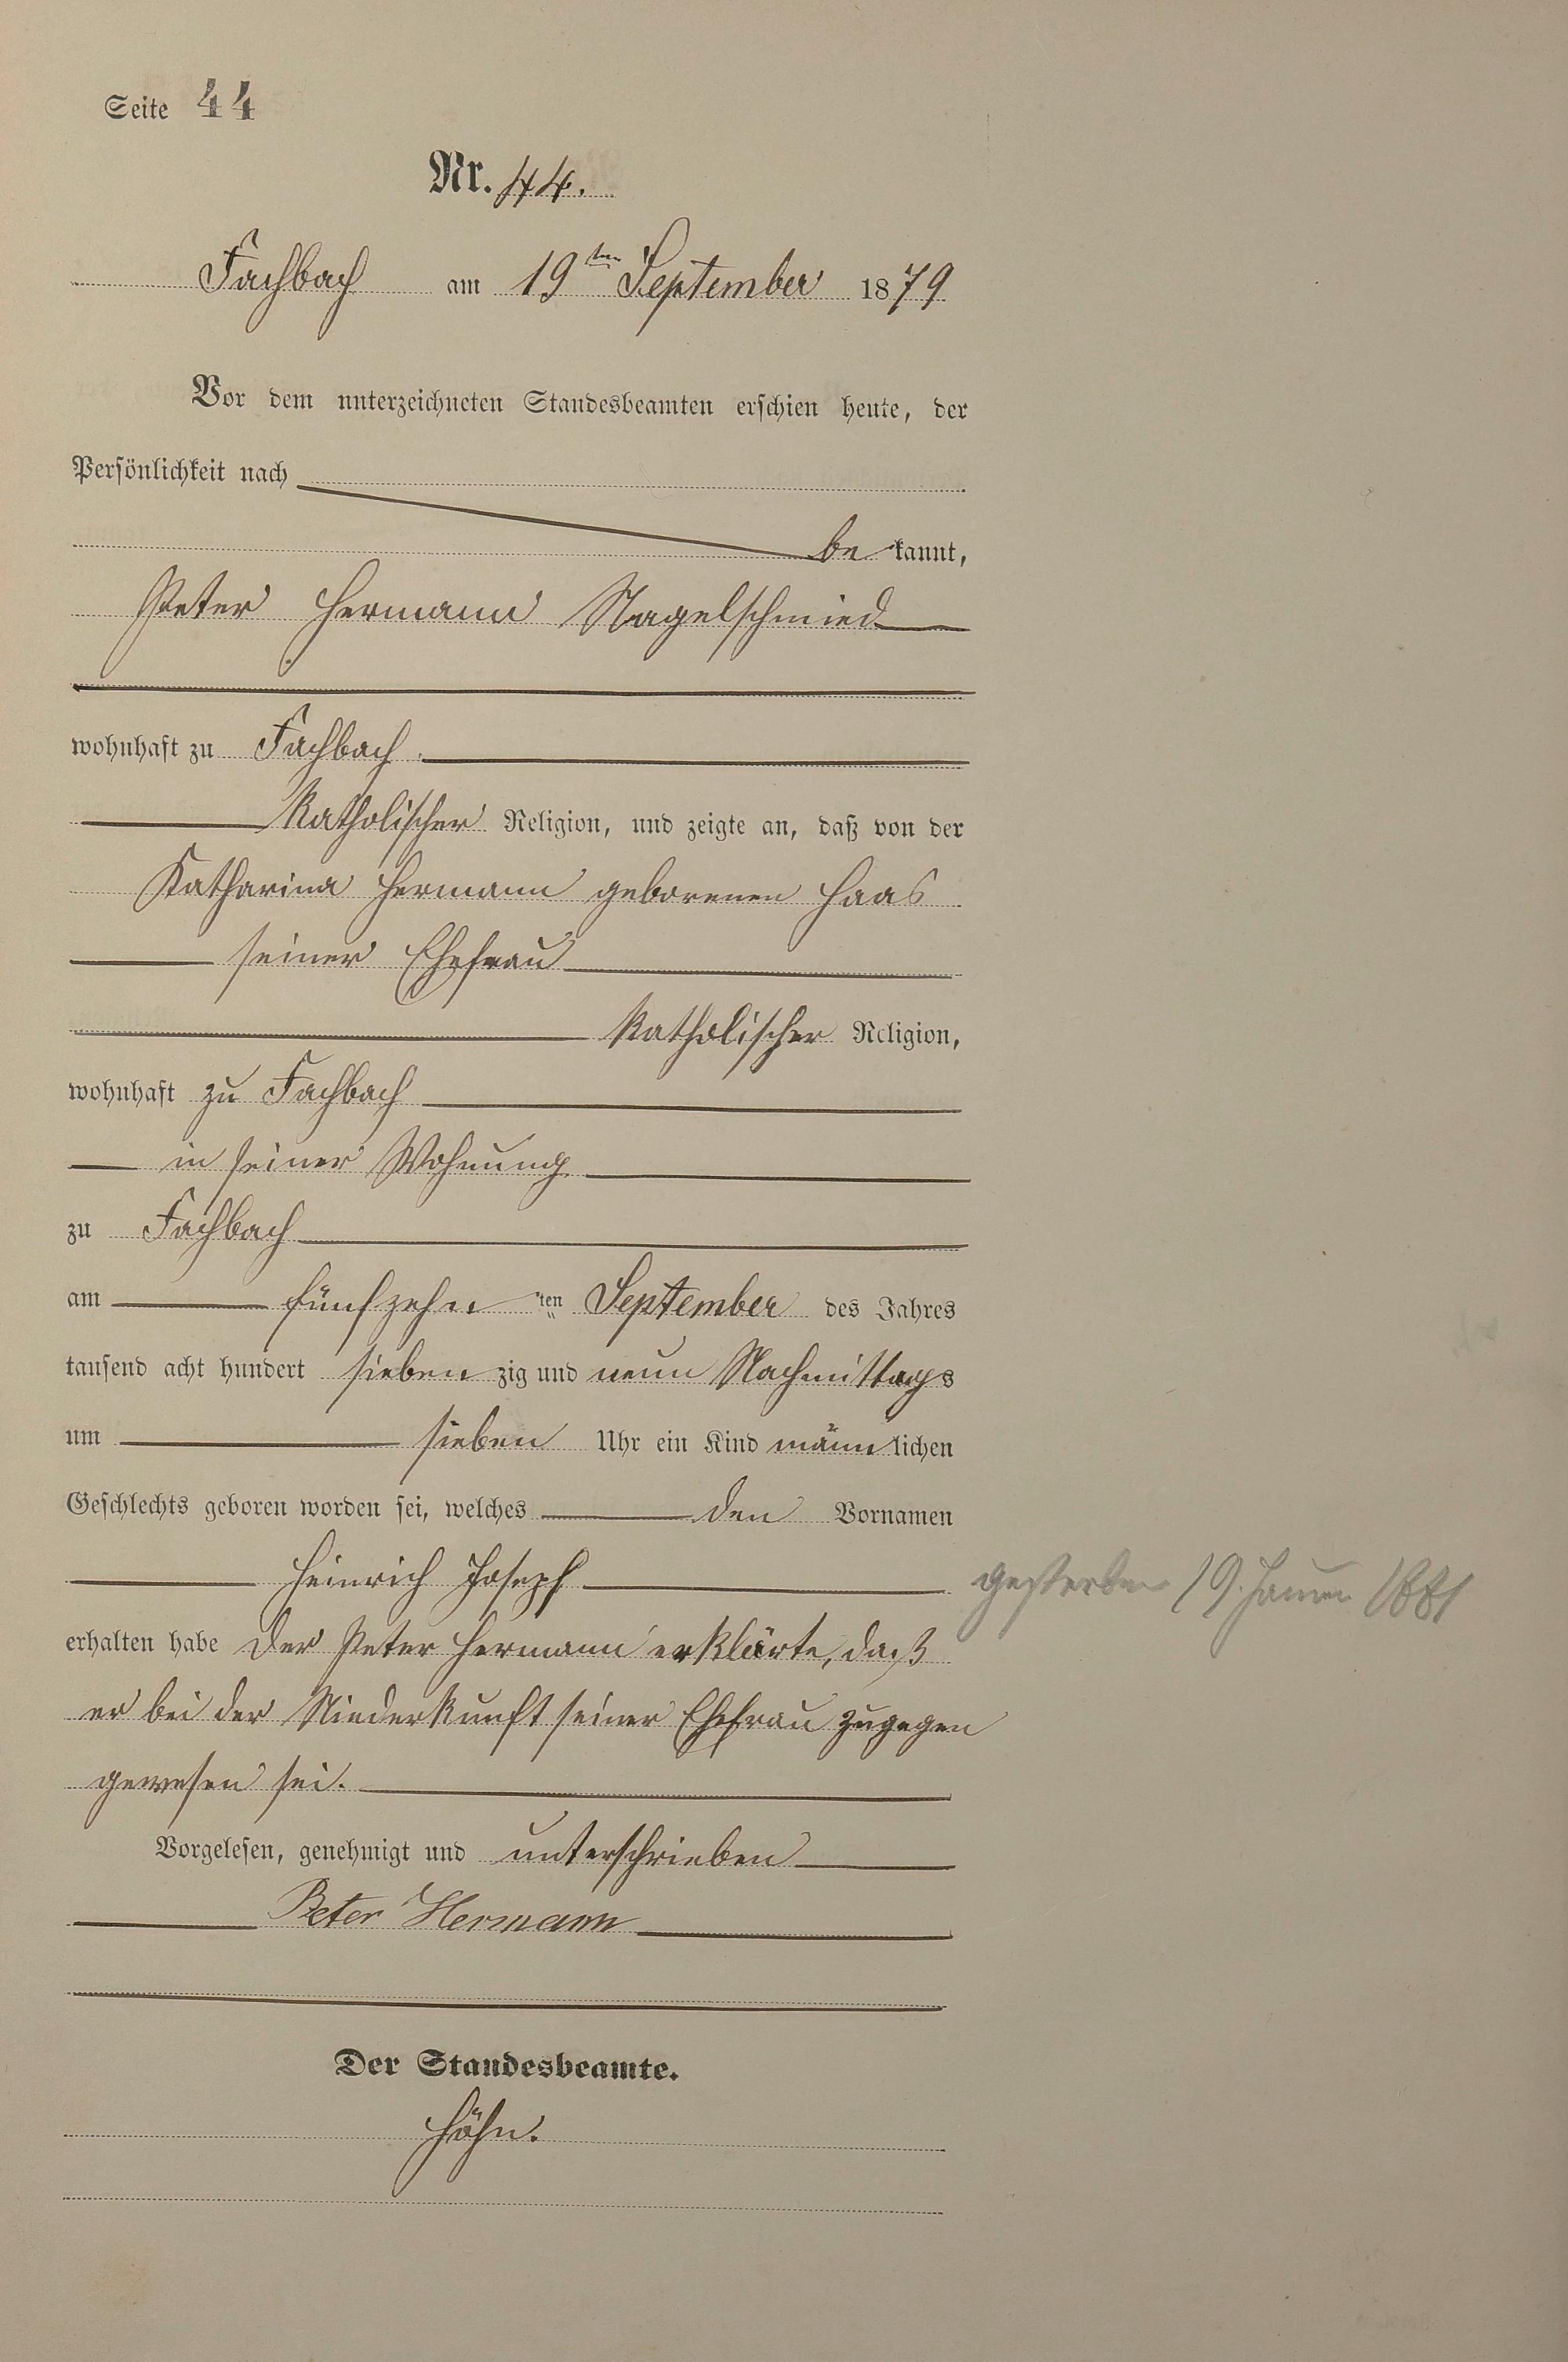 Seite 44
Nr. 44.
Fachbach am 19ten September 1879
Vor dem unterzeichneten Standesbeamten erschien heute, der
Persönlichkeit nach
be kannt,
Peter Hermann Nagelschmied
wohnhaft zu Fachbach
katholischer Religion, und zeigte an, daß von der
Katharina Hermann geborenen Haas
seiner Ehefrau
katholischer Religion,
wohnhaft zu Fachbach
in seiner Wohnung
zu Fachbach
am fünfzehn ten September des Jahres
tausend acht hundert sieben zig und neun Nachmittags
um sieben Uhr ein Kind männlichen
Geschlechts geboren worden sei, welches den Vornamen
Heinrich Joseph
gestorben 19. Januar 1881
erhalten habe Der Peter Hermann erklärte, daß
er bei der Niederkunft seiner Ehefrau zugegen
gewesen sei.
Vorgelesen, genehmigt und unterschrieben
Peter Hermann
Der Standesbeamte.
Höhn.